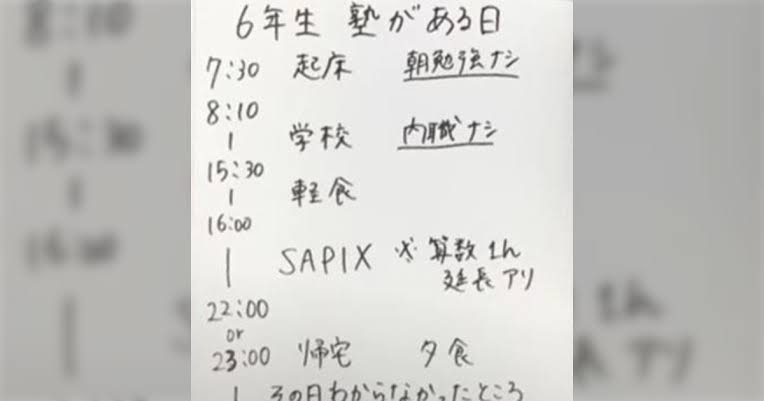 6年生 塾がある日
7:30 起床 朝勉強ナシ
8:10
| 学校 内職ナシ
15:30
| 軽食
16:00
| SAPIX ※算数1h
延長アリ
22:00
or
23:00 帰宅 夕食
| その日わからなかったところ